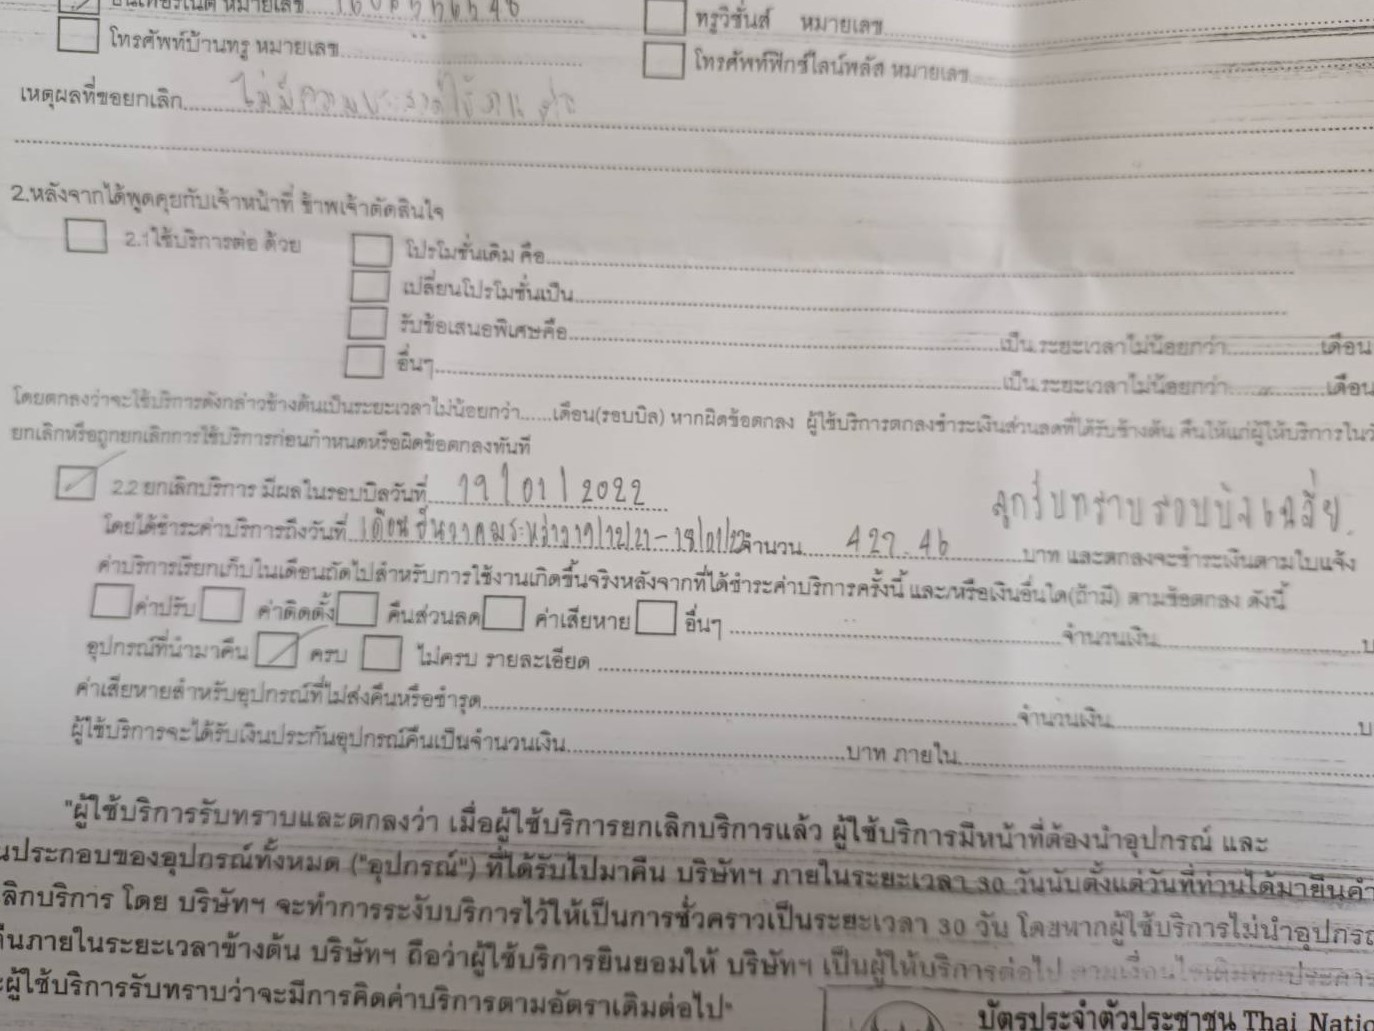 อินเทอร์เน็ต หมายเลข
ทรูวิชั่นส์ หมายเลข
โทรศัพท์บ้านทรู หมายเลข
โทรศัพท์ฟิกซ์ไลน์พลัส หมายเลข
เหตุผลที่ขอยกเลิก ไม่มีความประสงค์ใช้งานต่อ
2.หลังจากได้พูดคุยกับเจ้าหน้าที่ ข้าพเจ้าตัดสินใจ
2.1ใช้บริการต่อ ด้วย โปรโมชั่นเดิม คือ
เปลี่ยนโปรโมชั่นเป็น
รับข้อเสนอพิเศษคือ เป็น ระยะเวลาไม่น้อยกว่า เดือน
อื่นๆ เป็น ระยะเวลาไม่น้อยกว่า เดือน
โดยตกลงว่าจะใช้บริการดังกล่าวข้างต้นเป็นระยะเวลาไม่น้อยกว่า......เดือน(รอบบิล) หากผิดข้อตกลง ผู้ใช้บริการตกลงชำระเงินส่วนลดที่ได้รับข้างต้น คืนให้แก่ผู้ให้บริการในวั
ยกเลิกหรือถูกยกเลิกการใช้บริการก่อนกำหนดหรือผิดข้อตกลงทันที
2.2 ยกเลิกบริการ มีผลในรอบบิลวันที่ 19/01/2022
ลูกค้ารับทราบรอบบิลเฉลี่ย
โดยได้ชำระค่าบริการถึงวันที่ เดือนธันวาคมระหว่าง19/12/21-18/01/22จำนวน 427.46 บาท และตกลงจะชำระเงินตามใบแจ้ง
ค่าบริการเรียกเก็บในเดือนถัดไปสำหรับการใช้งานเกิดขึ้นจริงหลังจากที่ได้ชำระค่าบริการครั้งนี้ และ/หรือเงินอื่นใด(ถ้ามี) ตามข้อตกลง ดังนี้
ค่าปรับ ค่าติดตั้ง คืนส่วนลด ค่าเสียหาย อื่นๆ จำนวนเงิน บ
อุปกรณ์ที่นำมาคืน ครบ ไม่ครบ รายละเอียด
ค่าเสียหายสำหรับอุปกรณ์ที่ไม่ส่งคืนหรือชำรุด จำนวนเงิน บ
ผู้ใช้บริการจะได้รับเงินประกันอุปกรณ์คืนเป็นจำนวนเงิน บาท ภายใน
"ผู้ใช้บริการรับทราบและตกลงว่า เมื่อผู้ใช้บริการยกเลิกบริการแล้ว ผู้ใช้บริการมีหน้าที่ต้องนำอุปกรณ์ และ
นประกอบของอุปกรณ์ทั้งหมด ("อุปกรณ์") ที่ได้รับไปมาคืน บริษัทฯ ภายในระยะเวลา 30 วันนับตั้งแต่วันที่ท่านได้มายื่นคำ
ลิกบริการ โดย บริษัทฯ จะทำการระงับบริการไว้ให้เป็นการชั่วคราวเป็นระยะเวลา 30 วัน โดยหากผู้ใช้บริการไม่นำอุปกรณ
คืนภายในระยะเวลาข้างต้น บริษัทฯ ถือว่าผู้ใช้บริการยินยอมให้ บริษัทฯ เป็นผู้ให้บริการต่อไป ตามเงื่อนไขเดิมทุกประการ
ะผู้ใช้บริการรับทราบว่าจะมีการคิดค่าบริการตามอัตราเดิมต่อไป"
บัตรประจำตัวประชาชน Thai Natio